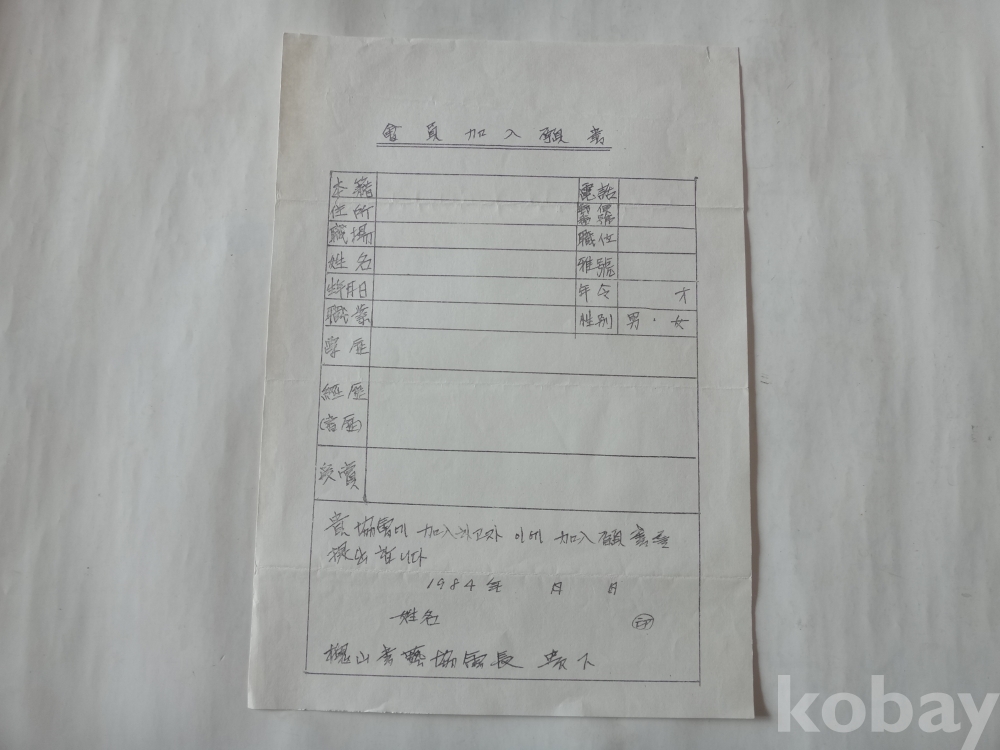 會員加入願書
本籍 電話
住所
職場 職位
姓名 雅號
生年月日 年令 才
職業 性別 男·女
學歷
經歷
(書歷)
貴協會에 加入하고자 이에 加入願書를
提出합니다
1984年 月 日
姓名 印
槐山書藝協會長 貴下
kobay